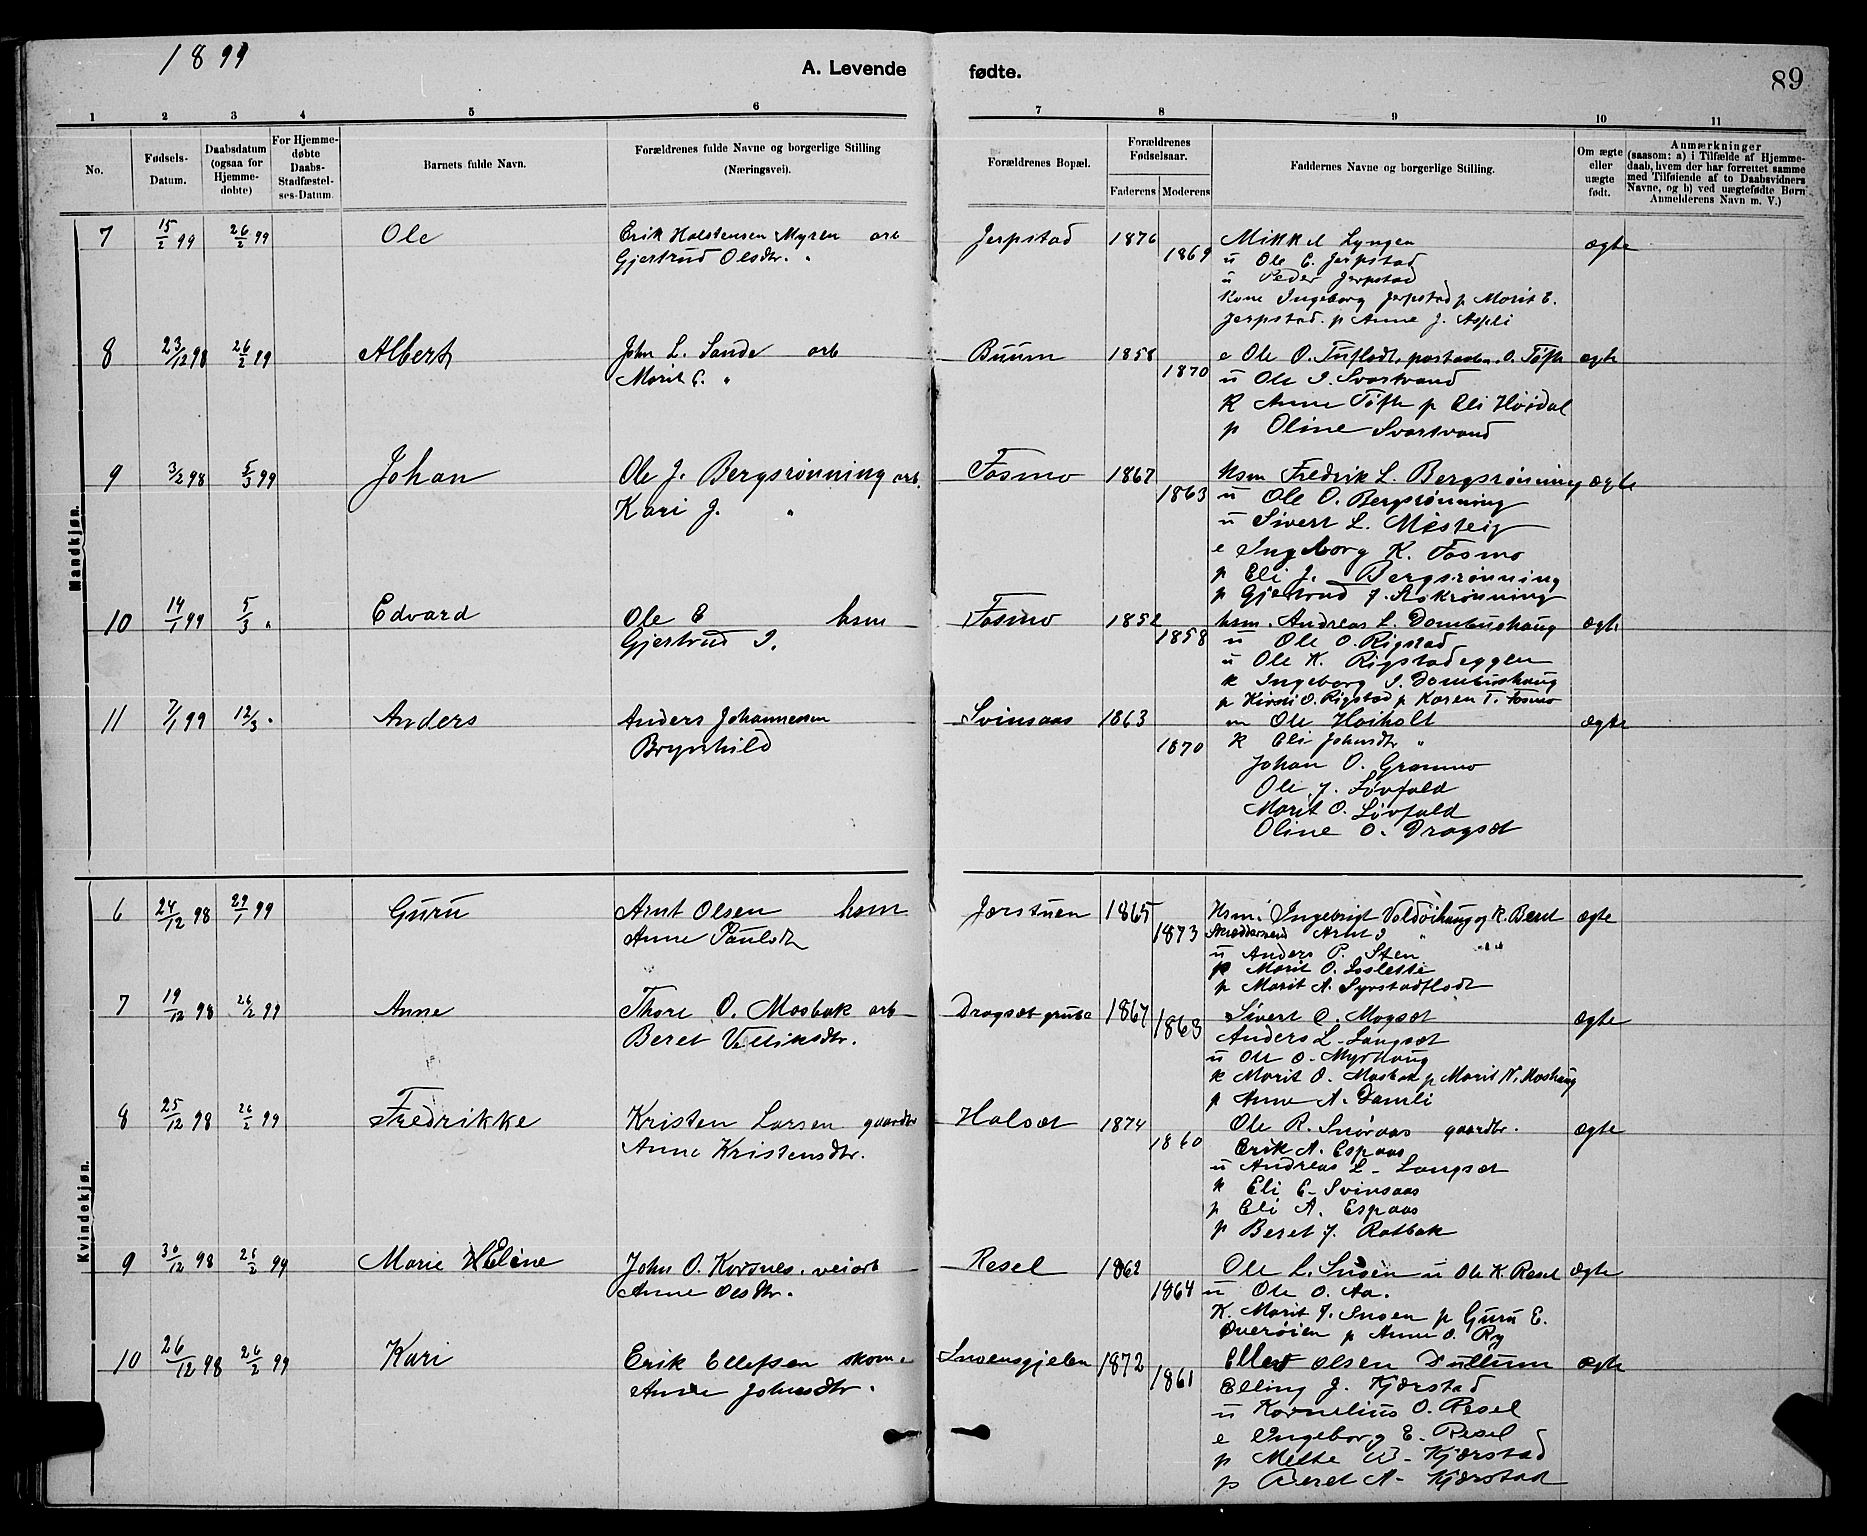 1899
A. Levende fødte.
89
1 2 3 4 5 6 7 8 9 10 11
No.
Fødsels-Datum.
Daabsdatum (ogsaa for Hjemme-døbte)
For Hjemme-døbte Daabs-Stadfæstel-ses-Datum.
Barnets fulde Navn.
Forældrenes fulde Navne og borgerlige Stilling (Næringsvei).
Forældrenes Bopæl.
Forældrenes Fødselsaar.
Faderens Moderens
Faddernes Navne og borgerlige Stilling.
Om ægte eller uægte født.
Anmærkninger (saasom: a) i Tilfælde af Hjemme-daab, hvem der har forrettet samme med Tilføiende af to Daabsvidners Navne, og b) ved uægtefødte Børn Anmelderens Navn m. V.)
Mandkjøn.
7 15/2 99 26/2 99 Ole Erik Halstensen Myren arb Jerpstad 1876 Mikkel Lyngen ægte
Gjertrud Olsdtr. " 1869 u Ole E. Jerpstad
u Peder Jerpstad
Kone Ingeborg Jerpstad p Marit E.
Jerpstad. p Anne J. Aspli
8 23/12 98 26/2 99 Albert John L. Sande arb Buum 1858 e Ole O. Tuflodt, postaabn. O. Tøfte ægte
Marit E. " 1870 u Ole I. Svartvand
K Anne Tøfte p Eli Høidal
p Oline Svartvand
9 3/2 98 5/3 99 Johan Ole J. Bergsrønning arb. Fosmo 1867 hsm Fredrik L. Bergsrønning ægte
Kari J. " 1863 u Ole O. Bergsrønning
u Sivert L. Msteig
e Ingeborg K. Fosmo
p Eli J. Bergsrønning
p Gjertrud J. Askrønning
10 14/1 99 5/3 " Edvard Ole E hsm Fosmo 1852 hsm. Andreas L. Dombushaug ægte
Gjertrud I. 1858 u Ole O. Rigstad
u Ole K. Rigstadeggen
k Ingeborg I. Dombushaug
p Kirsti O. Rigstad p Karen T. Fosmo
11 7/1 99 12/3 " Anders Anders Johannesen Svinsaas 1863 m Ole Hoiholt ægte
Brynhild 1870 K Eli Johnsdtr "
Johan O. Gramo
Ole J. Løvfald
Marit O. Løvfald
Oline O. Dragsæt
Kvindekjøn.
6 24/12 98 29/1 99 Guru Arnt Olsen hsm Jerstuen 1865 Hsm. Ingebrigt Voldøihaug og K. Beret ægte
Anne Paulsdtr 1873 Arnt I "
u Anders P. Sten
p Marit O. Loslette
p Marit A. Syrstadflodt
7 19/12 98 26/2 99 Anne Thore O. Mosbak arb Dragset grube 1867 Sivert O. Mogsæt ægte
Beret Velliksdtr. 1863 Anders L. Langsæt
u Ole O. Myrhaug
k Marit O. Mosbak p Marit N. Moshaug
p Anne A. Damli
8 25/12 98 26/2 99 Fredrikke Kristen Larsen gaardbr Holsæt 1874 Ole R. Snøraas gaardbr. ægte
Anne Kristensdtr. 1860 Erik A. Espaas
u Andreas L. Langsæt
k Eli E. Svinsaas
p Eli A. Espaas
p Beret J. Ratbak
9 30/12 98 26/2 99 Marie HEline John O. Korsnes. veiarb Resel 1862 Ole L. Snoen u Ole K. Resel ægte
Anne Olsdtr. 1864 u Ole O. Aa.
K. Marit J. Snoen p Guru E.
Overøien p Anne O. Ry
10 26/12 98 26/2 99 Kari Erik Ellefsen skom. Snoensgjelen 1872 Ellev Olsen Dullum ægte
Anne Johnsdtr. 1861 Elling J. Kjærstad
u Kornelius O. Resel
e Ingeborg E. Resel
p Mette B. Kjærstad
p Beret A. Kjærstad